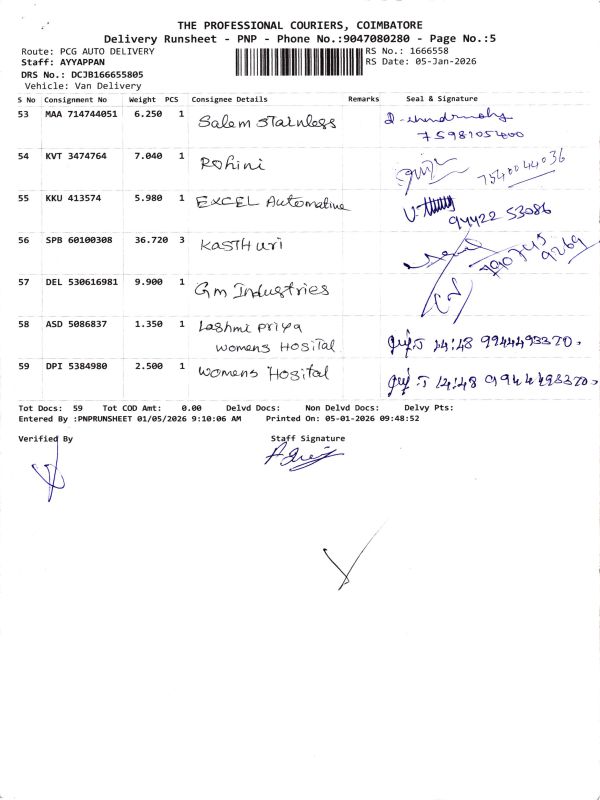 THE PROFESSIONAL COURIERS, COIMBATORE
Delivery Runsheet - PNP - Phone No.:9047080280 - Page No.:5
Route: PCG AUTO DELIVERY
RS No.: 1666558
Staff: AYYAPPAN
RS Date: 05-Jan-2026
DRS No.: DCJB166655805
Vehicle: Van Delivery
S No Consignment No Weight PCS Consignee Details Remarks Seal & Signature
53 MAA 714744051 6.250 1 Salem Stainless
7598105400
54 KVT 3474764 7.040 1 Rohini 7540044036
55 KKU 413574 5.980 1 EXCEL Automative
94422 53086
56 SPB 60100308 36.720 3 KASTHuri
990745
9269
57 DEL 530616981 9.900 1 Gm Industries
58 ASD 5086837 1.350 1 Lashmi priya
womens HOSITal 14:48 9944493370.
59 DPI 5384980 2.500 1 womens Hosital 14:48 9944493370.
Tot Docs: 59 Tot COD Amt: 0.00 Delvd Docs: Non Delvd Docs: Delvy Pts:
Entered By :PNPRUNSHEET 01/05/2026 9:10:06 AM Printed On: 05-01-2026 09:48:52
Verified By Staff Signature